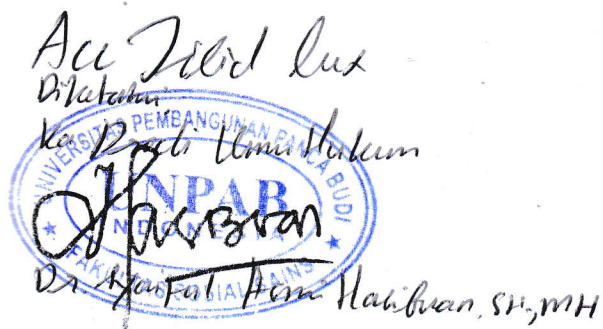 Acc Jilid lux
Diketahui,
Ka. Prodi Ilmu Hukum
UNIVERSITAS PEMBANGUNAN PANCA BUDI
UNPAB
INDONESIA
FAKULTAS SOSIAL SAINS
Hasibuan
Dr. Syaiful Asmi Hasibuan, SH, MH